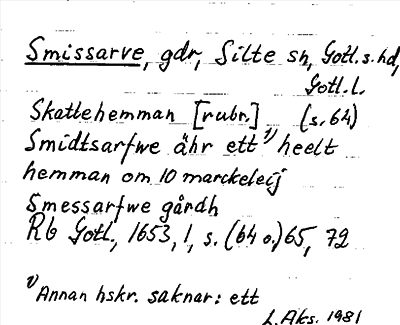 Smissarve, gdr, Silte sn, Gotl. s. hd,
Gotl. l.
Skattehemman [rubr.] (s. 64)
Smidtsarfwe ähr ett 1) heelt
hemman om 10 marckeleij
Smessarfwe gårdh
Rb Gotl, 1653, 1, s. (64 o.) 65, 72
1) Annan hskr. saknar: ett
L. Aks. 1981